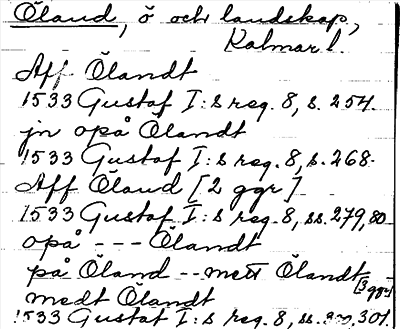 Öland, ö och landskap,
Kalmar l.
Aff Ölandt
1533 Gustaf I:s reg. 8, s. 254.
jn opå Ölandt
1533 Gustaf I:s reg. 8, s. 268.
Aff Öland [2 ggr]
1533 Gustaf I:s reg. 8, ss. 279, 80
opå --- Ölandt
på Öland -- mett Ölandt [3 ggr]
medt Ölandt
1533 Gustaf I:s reg. 8, ss. 301.